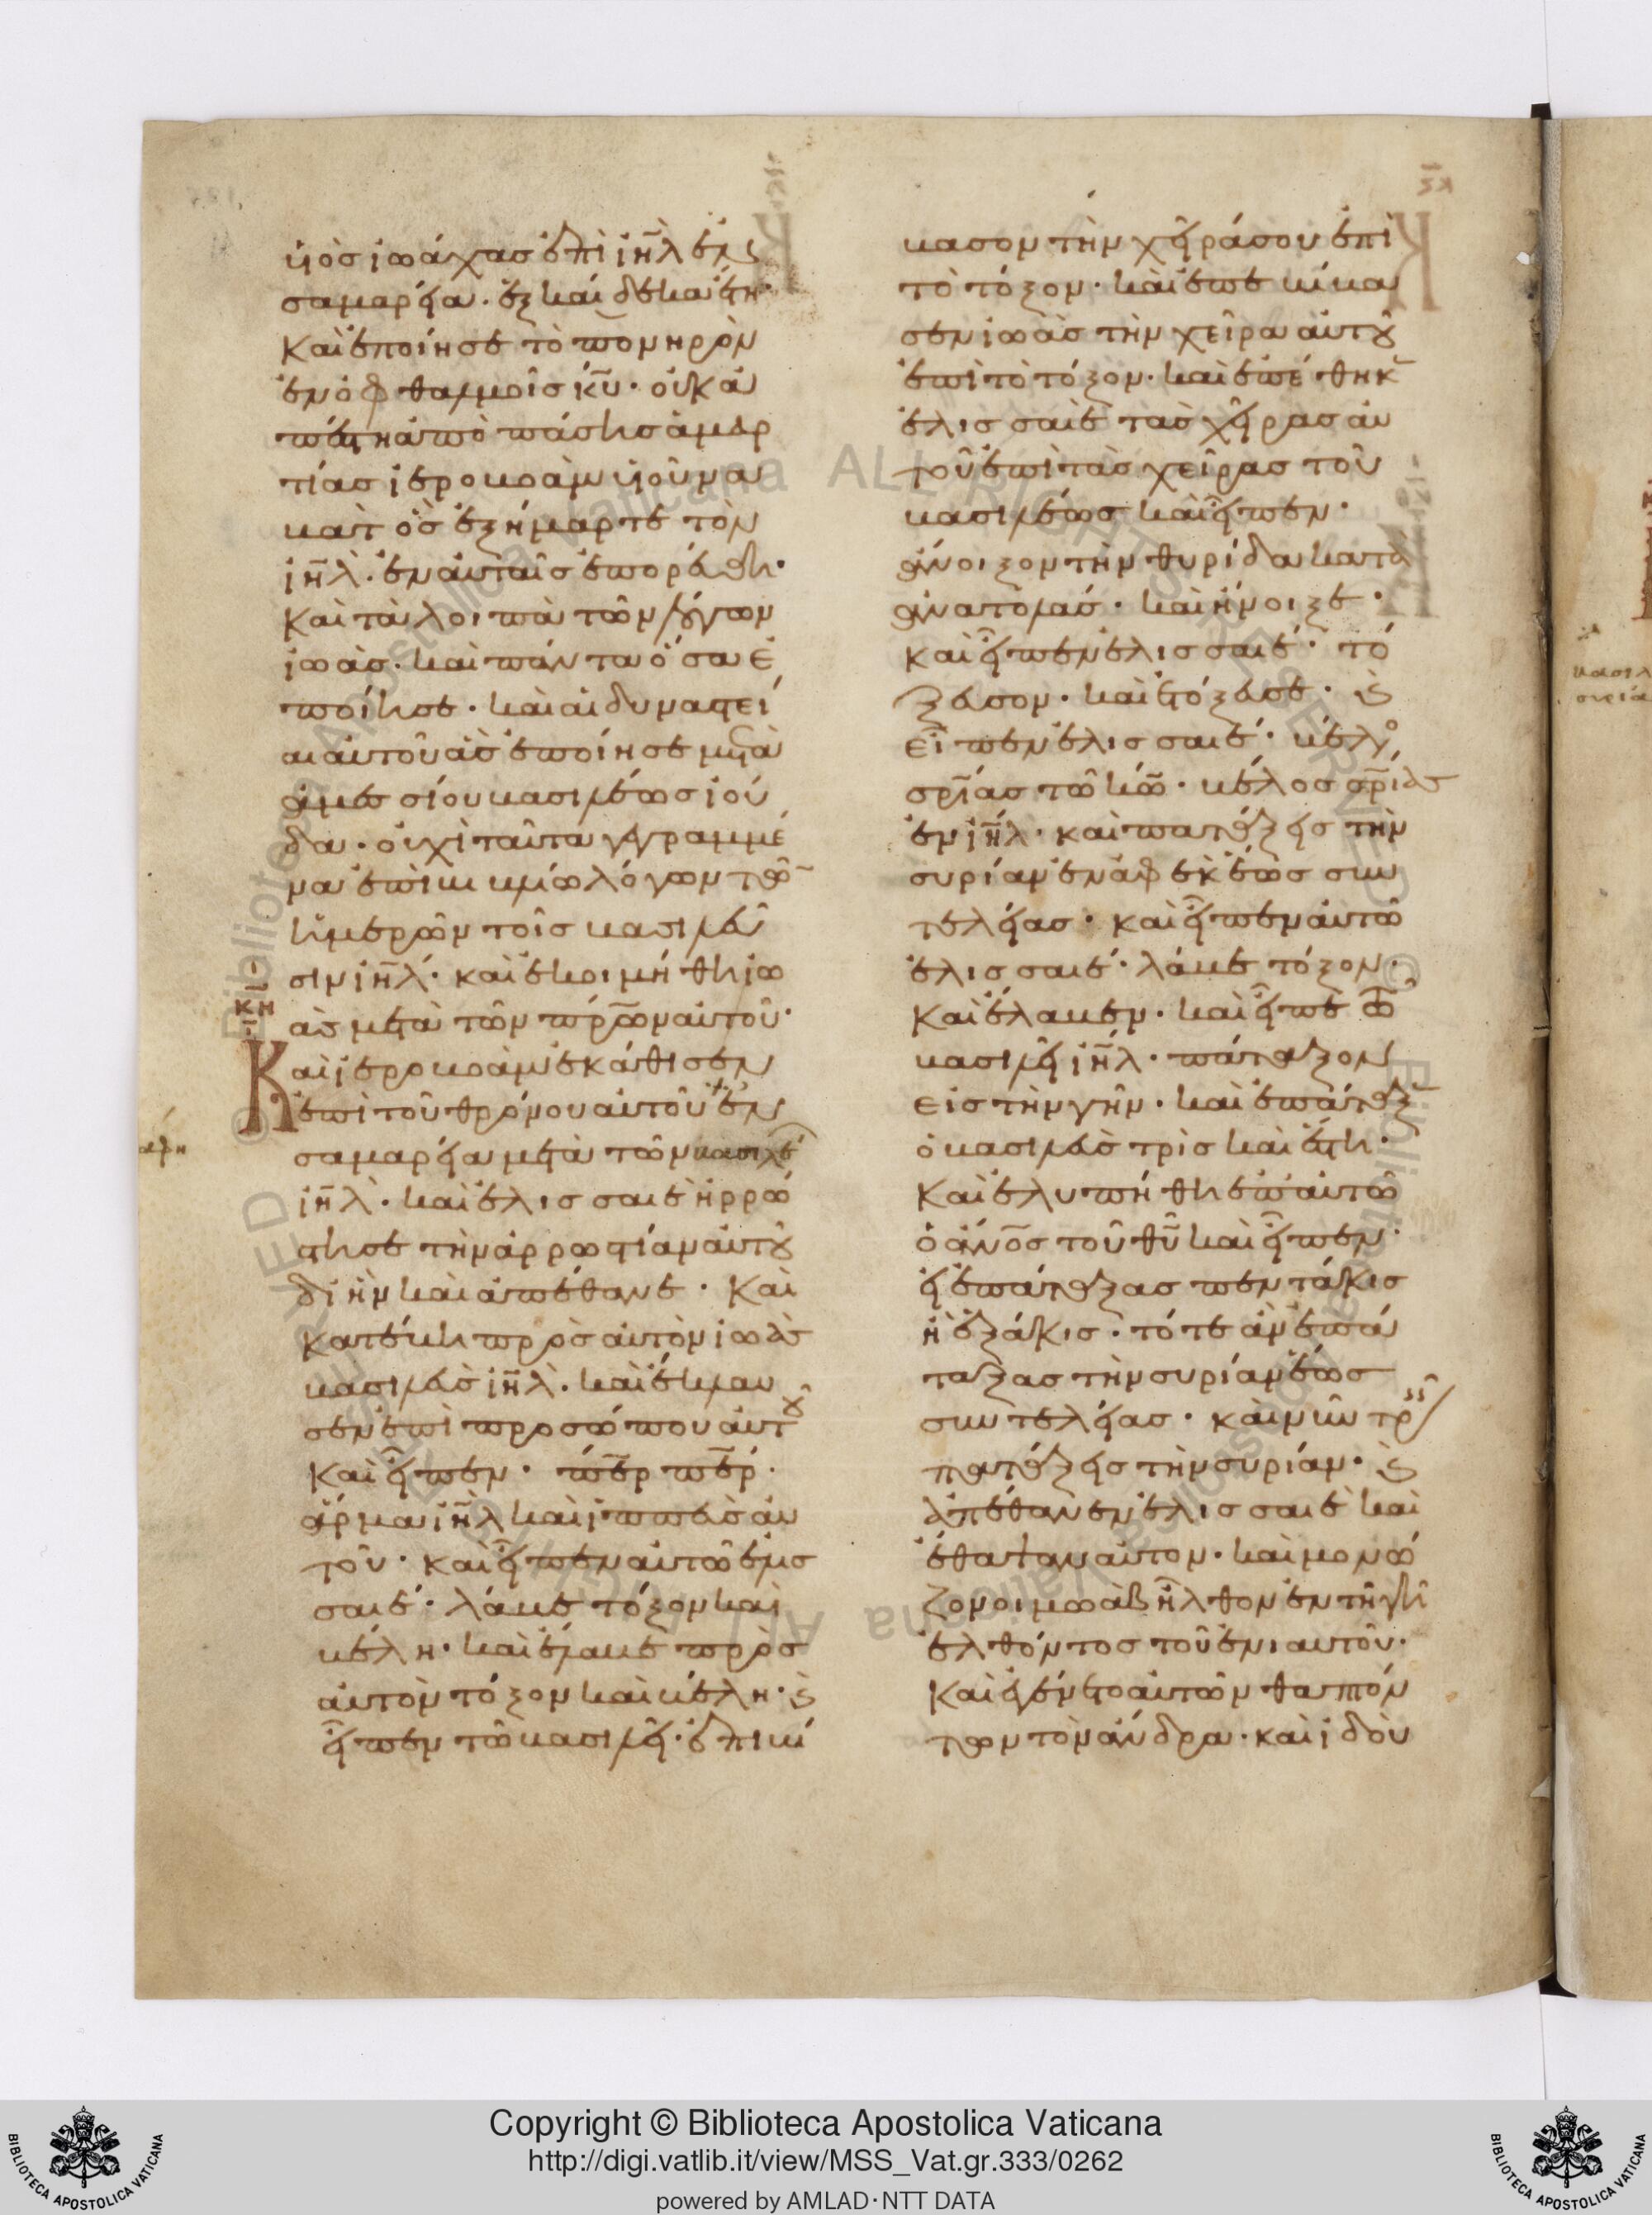 υἱὸσ ἰωάχασ ἐπὶ ἰη̅λ ἐν
σαμαρεία. ἓξ καὶ δέκα ἔτη·
Καὶ ἐποίησε τὸ πονηρὸν
ἐν ὀφθαλμοῖσ κ̅υ· οὐκ ἀ
πέστη ἀπὸ πάσησ ἁμαρ
τίασ ἱεροβοὰμ υἱοῦ να
βὰτ ὃσ ἐξήμαρτε τὸν
ἰη̅λ. ἐν αὐταῖσ ἐπορεύθη·
Καὶ τὰ λοιπὰ τῶν λόγων
ἰωάσ. καὶ πάντα ὅσα ἐ
ποίησε. καὶ αἱ δυναστεί
αι αὐτοῦ ἃσ ἐποίησε μετὰ
ἀμεσσίου βασιλέωσ ἰού
δα. οὐχὶ ταῦτα γεγραμμέ
να ἐπὶ βιβλίω λόγων τῶ̅
ἡμερῶν τοῖσ βασιλεῦ
σιν ἰη̅λ· καὶ ἐκοιμήθη ἰω
ὰσ μετὰ τῶν πρ̅ων αὐτοῦ·
κη
Καὶ ἱεροβοὰμ ἐκάθισεν
ἐπὶ τοῦ θρόνου αὐτοῦ ἐν
σαμαρεία μετὰ τῶν βασιλέ
ἰη̅λ. καὶ ἐλισσαιὲ ἠρρώ
στησε τὴν ἀρρωστίαν αὐτοῦ
δι ἣν καὶ ἀπέθανε· Καὶ
κατέβη πρὸσ αὐτὸν ἰωὰσ
βασιλεὺσ ἰη̅λ. καὶ ἔκλαυ
σεν ἐπὶ προσώπου αὐτοῦ
Καὶ εἶπεν· π̅ερ π̅ερ.
ἅρμα ἰη̅λ καὶ ἱππεὺσ αὐ
τοῦ· καὶ εἶπεν αὐτῶ ἐλισ
σαιέ· λάβε τόξον καὶ
βέλη· καὶ ἔλαβε πρὸσ
αὐτὸν τόξον καὶ βέλη· ϗ
εἶπεν τῶ βασιλεῖ· ἐπιβί
βασον τὴν χεῖρά σου ἐπὶ
τὸ τόξον· καὶ ἐπεβίβα
σεν ἰωὰσ τὴν χεῖρα αὐτοῦ
ἐπὶ τὸ τόξον· καὶ ἐπέθηκ̅
ἐλισσαιὲ τὰσ χεῖρασ αὐ
τοῦ ἐπὶ τὰσ χεῖρασ τοῦ
βασιλέωσ καὶ εἶπεν·
ἄνοιξον τὴν θυρίδα κατὰ
ἀνατολάσ· καὶ ἤνοιξε·
Καὶ εἶπεν ἐλισσαιέ· τό
ξευσον· καὶ ἐτόξευσε· ϗ
εἶπεν ἐλισσαιέ· βέλοσ
σρ̅ίασ τῶ κ̅ω· βέλοσ σρ̅ίασ
ἐν ἰη̅λ· καὶ πατάξεισ τὴν
συρίαν ἐν ἀφὲκ ἕωσ συν
τελείασ· καὶ εἶπεν αὐτῶ
ἐλισσαιέ· λάβε τόξον·
Καὶ ἔλαβεν· καὶ εἶπε τῶ
βασιλεῖ ἰη̅λ· πάταξον
εἰσ τὴν γῆν· καὶ ἐπάταξ̅
ὁ βασιλεὺσ τρὶσ καὶ ἔστη·
Καὶ ἐλυπήθη ἐπ αὐτῶ
ὁ ἄν̅οσ τοῦ θ̅υ καὶ εἶπεν·
εἰ ἐπάταξασ πεντάκισ
ἢ ἑξάκισ· τότε ἂν ἐπά
ταξασ τὴν συρίαν ἕωσ
συντελείασ· καὶ νῦν τρὶσ
πατάξεισ τὴν συρίαν· ϗ
ἀπέθανεν ἐλισσαιὲ καὶ
ἔθαψαν αὐτον· καὶ μονώ
ζονοι μωὰβ ἦλθον ἐν τῆ γῆ
ἐλθόντοσ τοῦ ἐνιαυτοῦ·
Καὶ ἐγένετο αὐτῶν θαπτόν
των τὸν ἄνδρα· καὶ ἰδοὺ
Copyright © Biblioteca Apostolica Vaticana
http://digi.vatlib.it/view/MSS_Vat.gr.333/0262
powered by AMLAD·NTT DATA
BIBLIOTECA APOSTOLICA VATICANA
BIBLIOTECA APOSTOLICA VATICANA